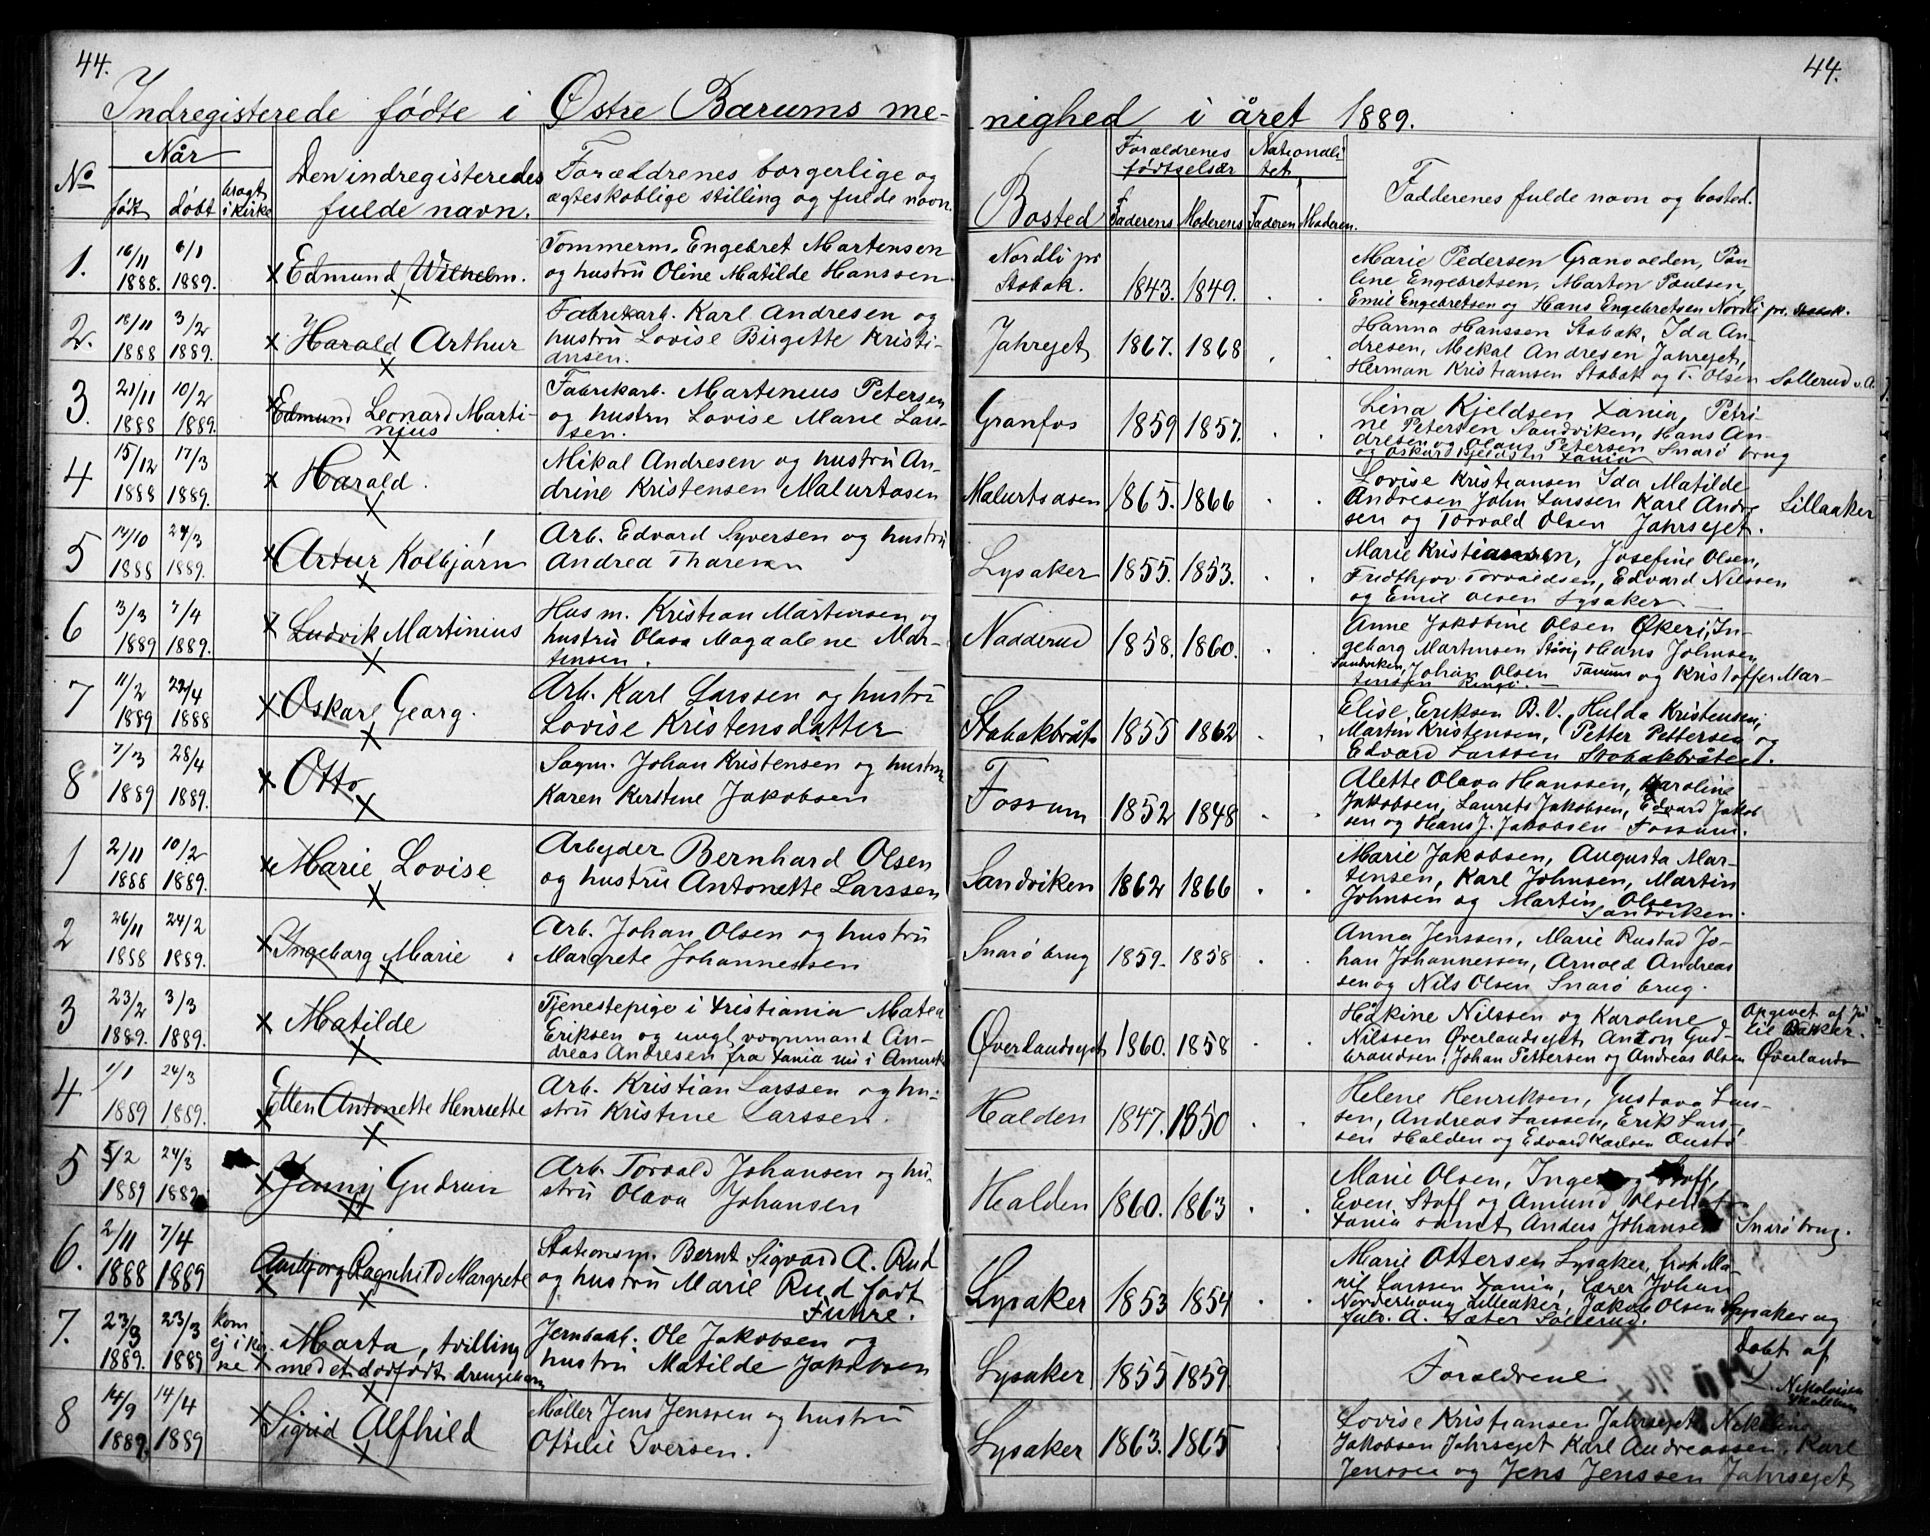 44.
44.
Indregisterede fødte i Østre Bærums me-
nighed i året 1889.
No
Når
født døbt bragt i kirke
Den indregisteredes
fulde navn.
Forældrenes borgerlige og
ægteskablige stilling og fulde navn.
Bosted
Forældrenes
fødselsår
Faderens Moderens
Nationali
tet
Faderen Moderen.
Fadderenes fulde navn og bosted.
1.
16/11 6/1
1888. 1889.
Edmund Wilhelm.
Tømmerm. Engebret Martensen
og hustru Oline Matilde Hanssen
Nordli pr
Stabæk.
1843. 1849.
Marie Pedersen Granvolden, Pau-
line Engebretsen, Marton Poulsen,
Emil Engebretsen og Hans Engebretsen Nordli pr. Stabæk.
2.
18/11 3/2
1888 1889.
Harald Arthur
Fabrikarb. Karl Andresen og
hustru Lovise Birgitte Kristi-
ansen.
Jahrejet
1867. 1868
Hanna Hanssen Stabæk, Ida An-
dresen, Mikal Andresen Jahrejet,
Herman Kristiansen Stabæk og T. Olsen Sollerud v. A.
3.
21/11 10/2
1888 1889.
Edmund Leonard Marti-
nius
Fabrikarb. Martinius Petersen
og hustru Lovise Marie Lars-
sen.
Granfos
1859 1857.
Lina Kjeldsen Xania, Petri-
ne Petersen Sandviken, Hans An-
dresen og Olaus Petersen Snarø brug
og Oskar Kjeldsen Xania
4
15/12 17/3
1888 1889.
Harald.
Mikal Andresen og hustru An-
drine Kristensen Malurtåsen
Malurtsåsen
1865. 1866
Lovise Kristiansen Ida Matilde
Andresen John Larssen Karl Andre
sen og Torvald Olsen Jahrsejet.
Lilleaker
5
14/10 24/3
1888 1889.
Artur Kolbjørn
Arb. Edvard Syversen og hustru
Andrea Thoresen
Lysaker
1855. 1853.
Marie Kristiansen, Josefine Olsen,
Fridthjov Torvaldsen, Edvard Nilssen
og Emil Olsen Lysaker
6
3/3 7/4
1889 1889.
Ludvik Martinius
Husm. Kristian Martensen og
hustru Olava Magdalene Mar-
tensen.
Nadderud
1858. 1860.
Anne Jakobine Olsen Økeri, In-
geborg Martensen Støvi, Hans Johnsen
Sandviken, Johan Olsen Tanum og Kristoffer Mar-
tensen Ringi
7
11/2 22/4
1889 1888
Oskar Georg.
Arb. Karl Larssen og hustru
Lovise Kristensdatter
Stabækbråt.
1855 1862
Elise Eriksen B.V. Hulda Kristensen,
Martin Kristensen, Petter Pettersen og
Edvard Larssen Stabækbråtet.
8
7/3 28/4
1889 1889.
Otto
Sagm. Johan Kristensen og hustru
Karen Kerstine Jakobsen
Fossum
1852 1848
Alette Olava Hanssen, Karoline
Jakobsen, Laurits Jakobsen, Edvard Jakob
sen og Hans J. Jakobsen Fossum.
1
2/11 10/2
1888 1889.
Marie Lovise
Arbejder Bernhard Olsen
og hustru Antonette Larssen
Sandviken
1862 1866
Marie Jakobsen, Augusta Mar-
tensen, Karl Johnsen, Martin
Johnsen og Martin Olsen
Sandviken.
2
26/11 24/2
1888 1889.
Ingeborg Marie
Arb. Johan Olsen og hustru
Margrete Johannessen
Snarø brug
1859. 1858
Anna Jenssen, Marie Rustad Jo-
han Johannessen, Arnold Andreas
sen og Nils Olsen Snarø brug.
3
23/2 3/3
1889. 1889.
Matilde
Tjenestepige i Kristiania Matea
Eriksen og ungk. vognmand An-
dreas Andresen fra Xania nu i Amerik.
Øverlandsejet
1860. 1858
Håkine Nilssen og Karoline
Nilssen Øverlandsejet Anton Gud-
brandsen, Johan Pettersen og Andreas Olsen Øverlands
Opgivet af
til Bakker.
4
1/1 24/3
1889 1889.
Ellen Antonette Henriette
Arb. Kristian Larssen og hu-
stru Kristine Larssen.
Halden
1847. 1850
Helene Henriksen, Gustava Lars-
sen, Andreas Larssen, Erik Lars-
sen Halden og Edvard Karlsen Oustø
5
5/2 24/3
1889 1889
Jenny Gudrun
Arb. Torvald Johansen og hu-
stru Olava Johansen
Halden
1860. 1863
Marie Olsen, Ingeborg Stoff,
Even Stoff og Amund Olsen af
Xania samt Anders Johansen Snarø brug.
6.
2/11 7/4
1888 1889
Aasbjørg Ragnhild Margrete
Stationsm. Bernt Sigvard A. Rud
og hustru Marie Rud født
Fuhre.
Lysaker
1853 1854
Marie Ottersen Lysaker, frøk. Ma-
rie Larssen Xania, Lærer Johan
Norderhaug Lilleaker, Jakob Olsen Lysaker og
Gulv. A. Sæter Sollerud.
7.
23/3 23/3
1889. 1889
kom
ej i kir
ne
Marta, tvilling
med et dødfødt drengebarn
Jernbarb. Ole Jakobsen og
hustru Matilde Jakobsen
Lysaker
1855 1859
Forældrene
Døbt af
Nikolaisen
8
14/9 14/4
1889. 1889
Sigrid Alfhild
Møller Jens Jenssen og hustru
Ottilie Iversen.
Lysaker
1863. 1865
Lovise Kristiansen Jahrsejet Nikoline
Jakobsen Jahrsejet Karl Andreassen, Karl
Jenssen og Jens Jenssen Jahrsejet